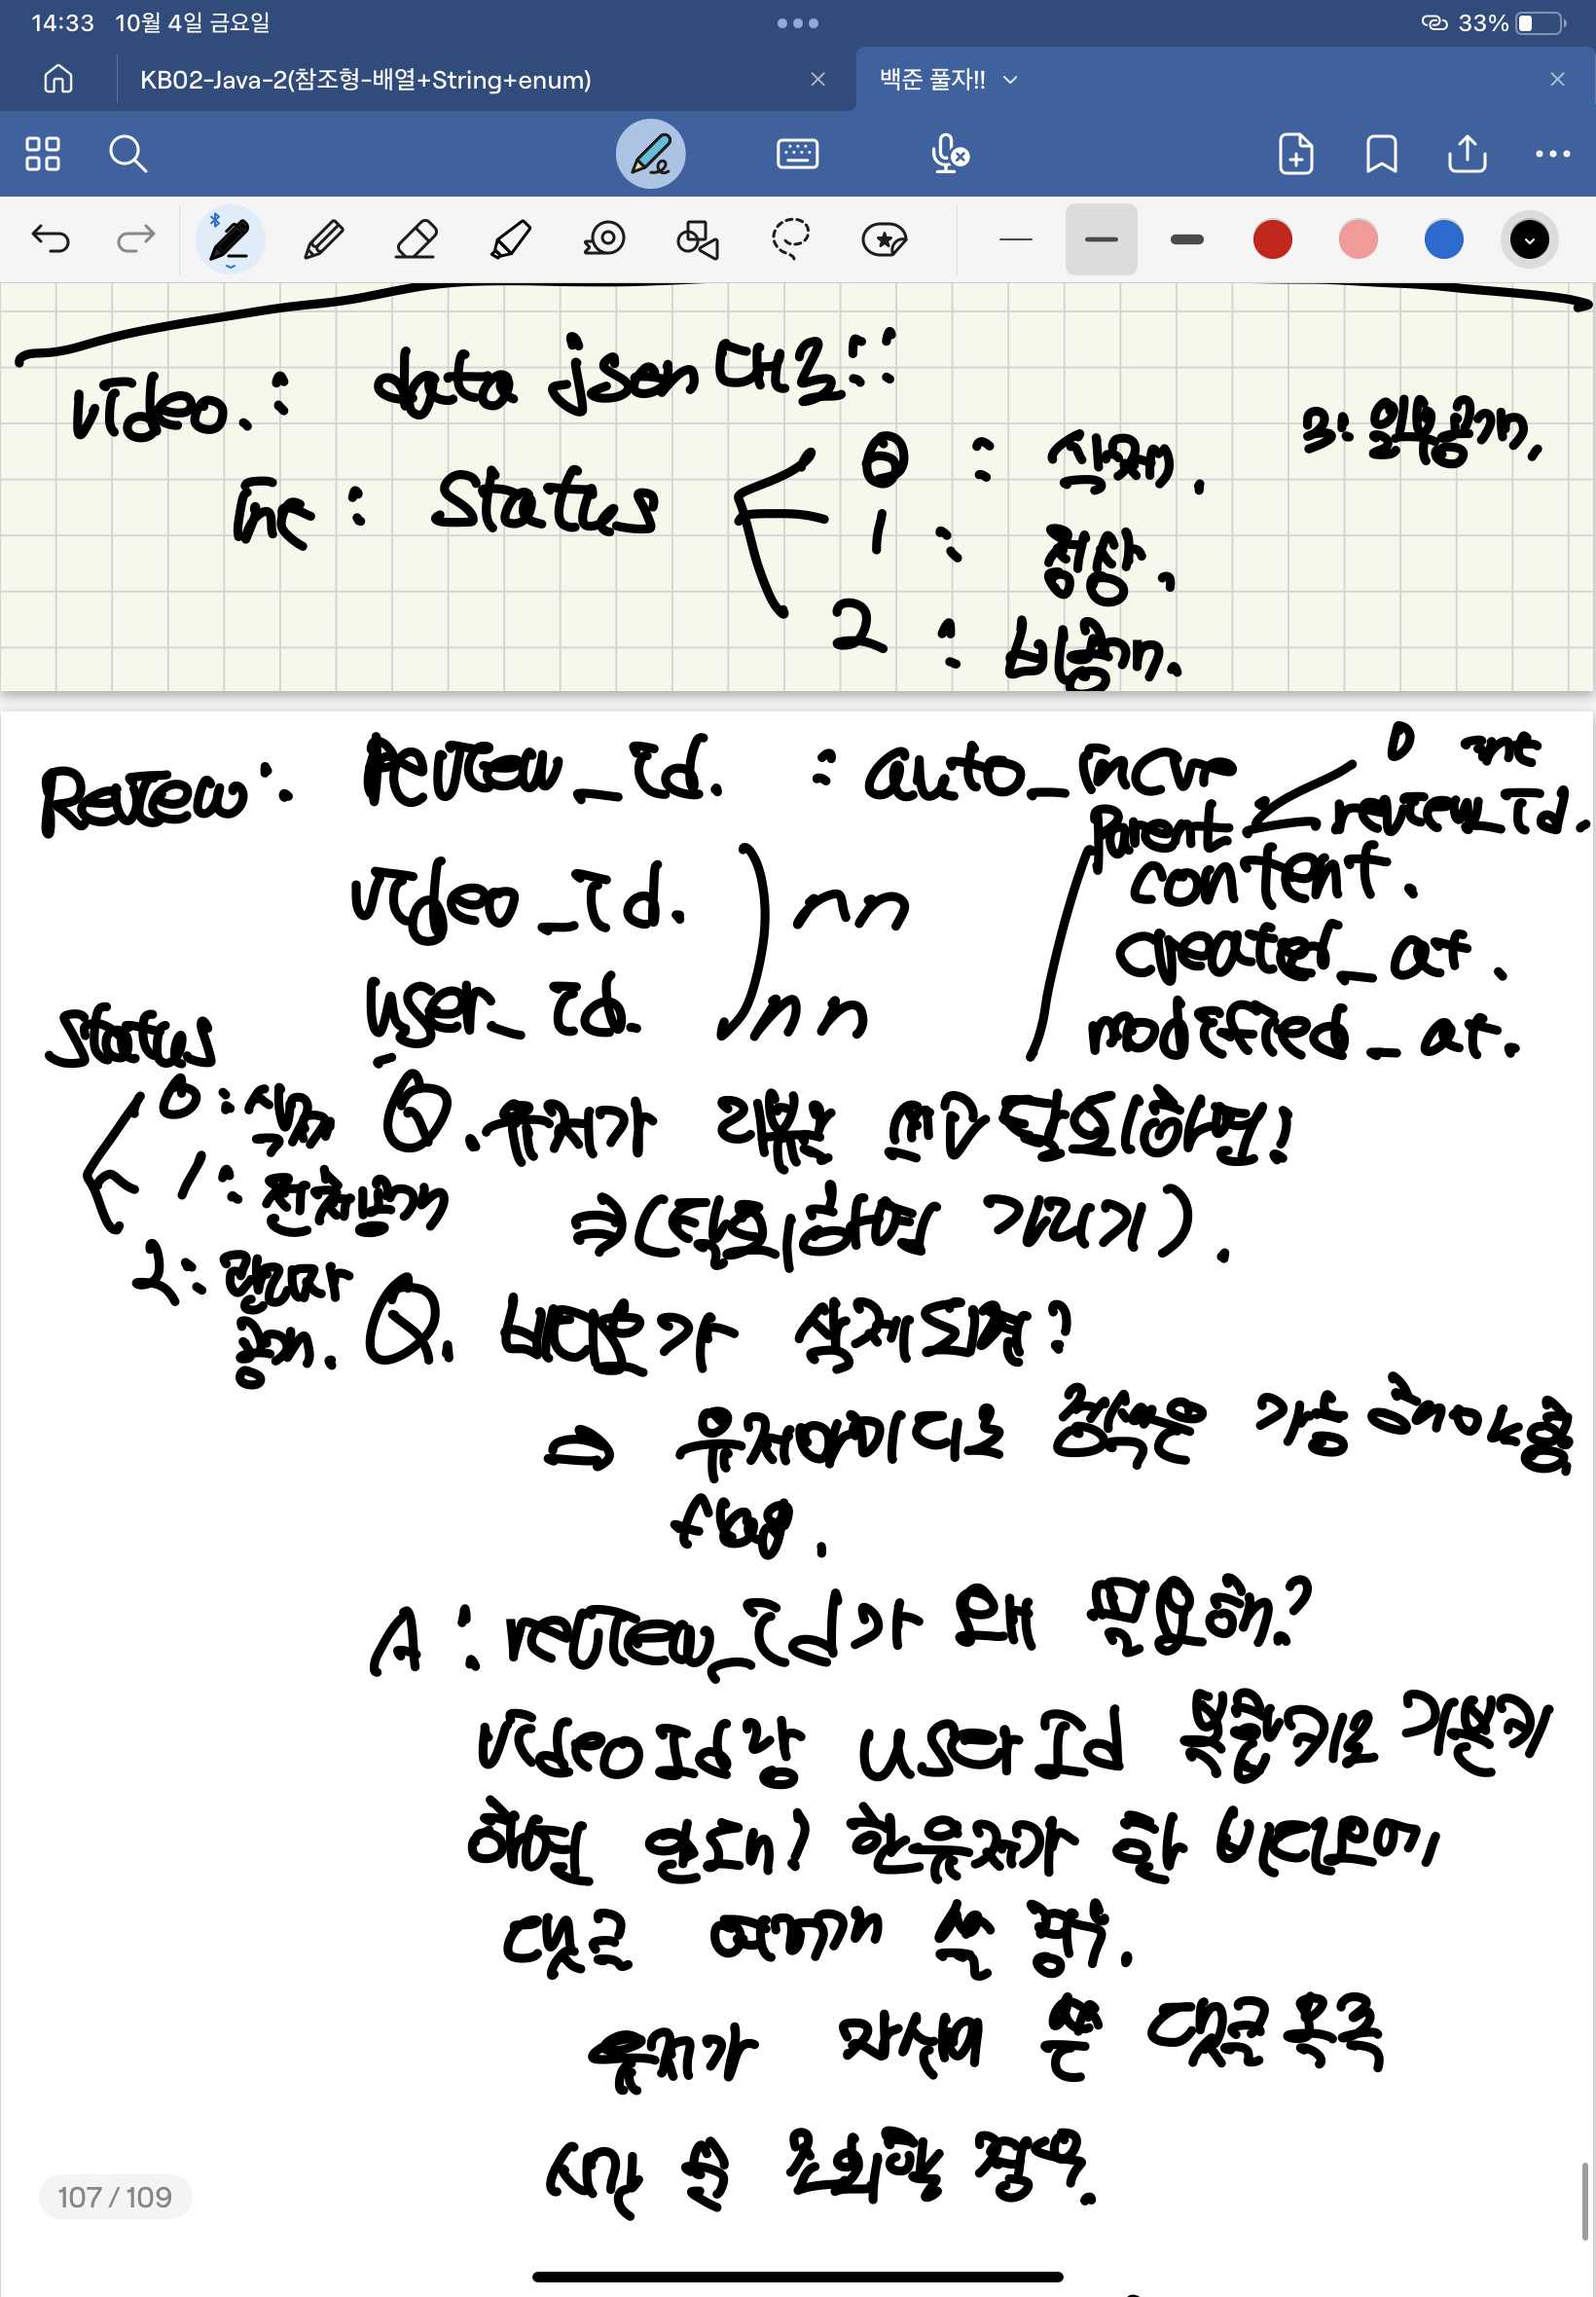 14:33 10월 4일 금요일 33%
KB02-Java-2(참조형-배열+String+enum)
백준 풀자!!
video : data json 대로!!
int : status
0 : 삭제.
1 : 정상.
2 : 비공개.
3: 일부공개.
Review : Review_id. : auto_incre
video_id. nn
user_id. nn
Parent
0 int
review_id.
content.
created_at.
modified_at.
status
0 : 삭제
1 : 전체공개
2 : 관리자
공개.
Q. 유저가 리뷰쓰고 탈퇴하면?
⇒ (탈퇴하면 가리기).
Q. 비디오가 삭제되면?
⇒ 유저아이디로 검색은 가능해야함
flag.
A : review_id가 왜 필요해?
VideoId랑 UserId 복합키로 기본키
하면 안돼? 한유저가 한 비디오에
댓글 여러개 쓸 경우.
유저가 자신이 쓴 댓글목록
시간 순 조회할 경우.
107 / 109